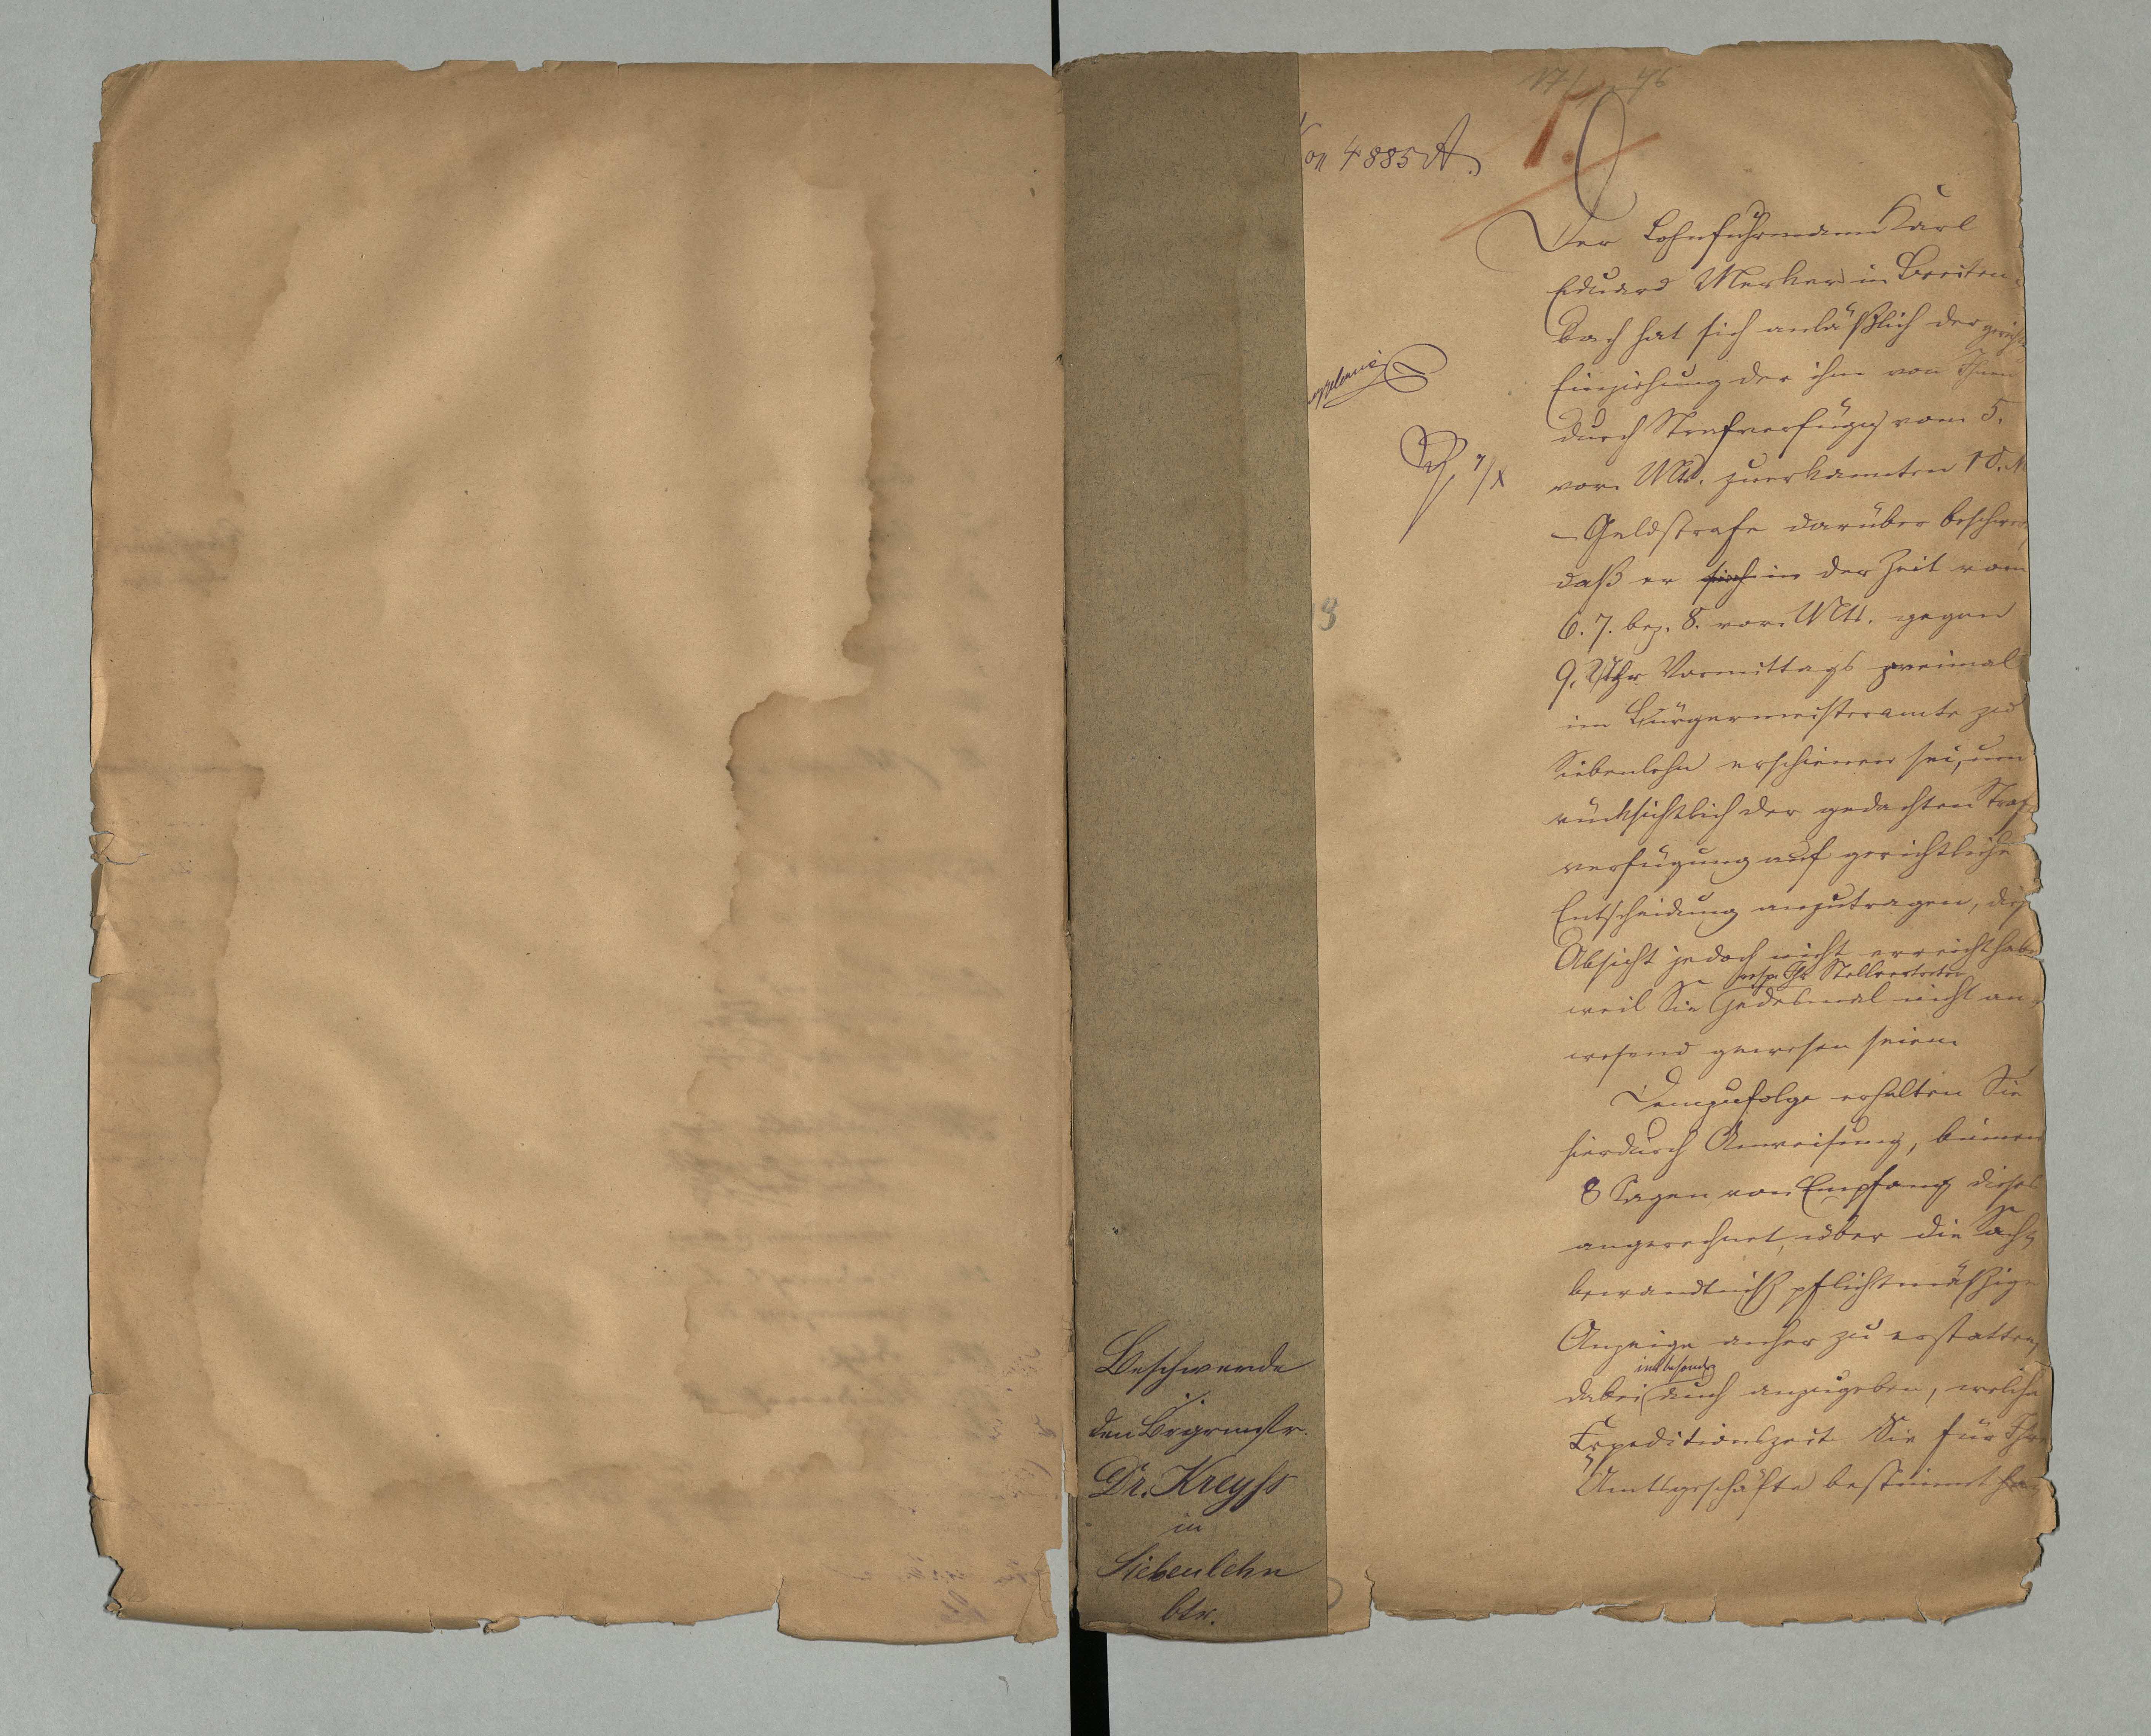 4885 A.
Der Lohnfuhrmann Karl
Eduard Merker in Breiten-
bach hat sich anläßlich der
Einziehung der ihm von Ihnen
durch Strafverfügg vom 5.
vor. Mts. zuerkannten 10. M
– Geldstrafe darüber beschwer
daß er sich in der Zeit vom
6. 7. bez. 8. vor. Mts. gegen
9. Uhr Vormittags zweimal
im Bürgermeisteramte zu
Siebenlehn erschienen sei, um
rücksichtlich der gedachten Straf
verfügung auf gerichtliche
Entscheidung anzutragen, dies
Absicht jedoch nicht erreicht habe
resp. Ihr Stellvertreter
weil Sie jedesmal nicht an-
wesend gewesen seien.
Demzufolge erhalten Sie
hierdurch Anweisung, binnen
8 Tagen, von Empfang dieses
angerechnet, über die Sach-
bewandtniß pflichtmäßige
Anzeige anher zu erstatten,
insbesondere
dabei auch anzugeben, welche
Expeditionszeit Sie für Ihre
Amtsgeschäfte bestimmt ha-
Beschwerde
den Brgrmstr.
Dr. Kreyß
in
Siebenlehn
btr.